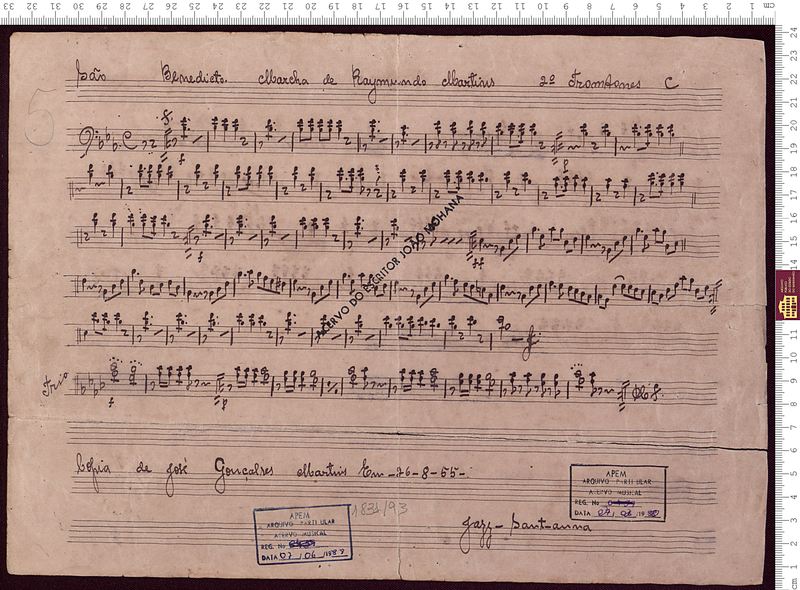 São Benedicto. Marcha de Raymundo Martins 2º Trombones C
5
f
f
ACERVO DO ESCRITOR JOÃO MOHANA
f
ff
Trio
f
p
Copia de José Gonçalves Martins Em-26-8-55-
APEM
ARQUIVO PARTICULAR
ACERVO MUSICAL
REG. No
DATA 07, 06, 19
1834/93
Jazz-Sant-anna
APEM
ARQUIVO PARTICULAR
ACERVO MUSICAL
REG. No
DATA 07, 06, 1988